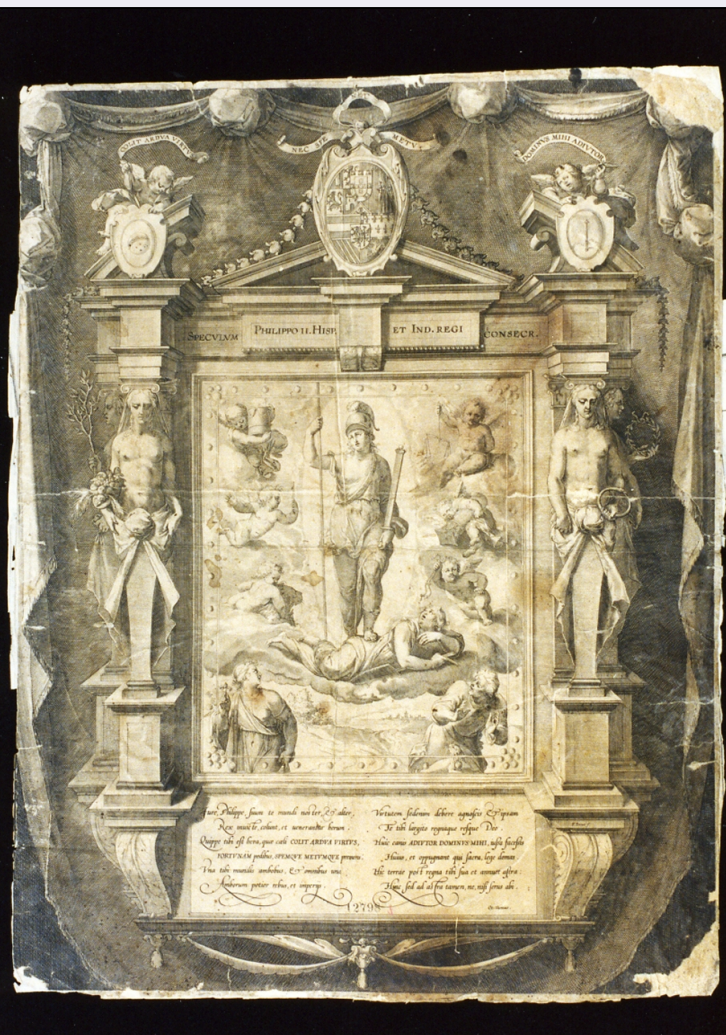 COLIT ARDVA VIRTVS
NEC SPE NEC METV
DOMINVS MIHI ADIVTOR
SPECVLVM PHILIPPO II. HISP. ET IND. REGI CONSECR.
Iure, Philippe, suum te mundi noster, & alter,
Rex inuicte, colunt, et venerantur herum.
Quippe tibi est hera, quæ cœli COLIT ARDVA VIRTVS,
FORTVNAM pedibus, SPEMQVE METVMQVE premens.
Vna tibi mundis ambobus, & omnibus una
Amborum potior rebus, et imperijs.
Virtutem sed enim debere agnoscis & ipsam
Te tibi largito regnaque resque Deo.
Huic canis ADIVTOR DOMINVS MIHI,
Huius, et oppugnant qui sacra, lege domas
Hic terræ post regna tibi sua et annuet astra:
Hunc, sed ad astra tamen, ne, nisi serus abi.
12798